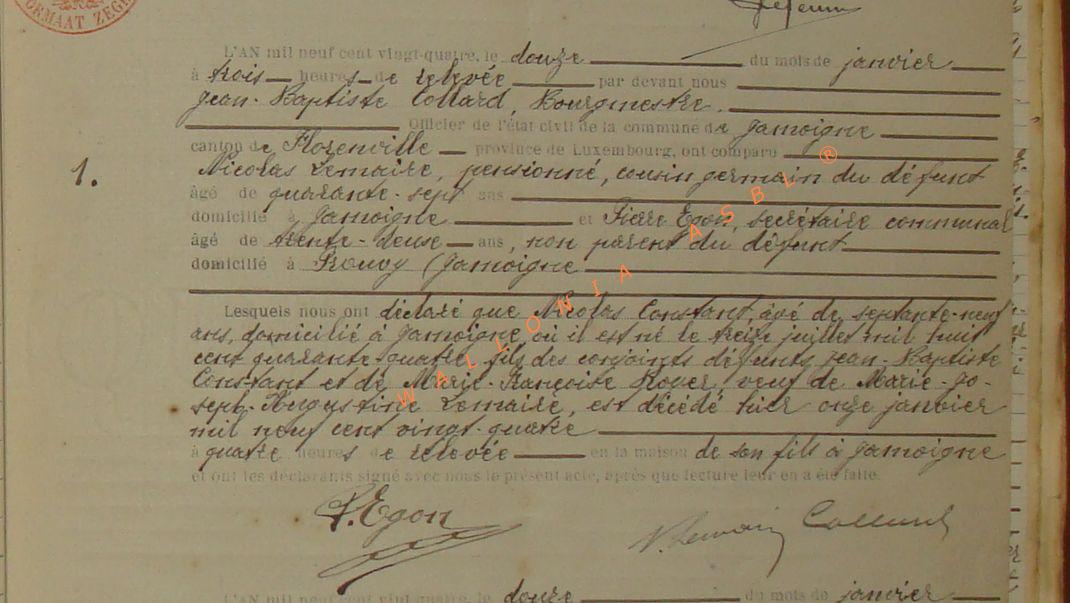 ORMAAT ZEG
L'AN mil neuf cent vingt-quatre, le douze du mois de janvier
à trois heures de relevée par devant nous
Jean-Baptiste Collard, Bourgmestre.
Officier de l'état civil de la commune de Jamoigne
canton de Florenville province de Luxembourg, ont comparu
1. Nicolas Lemaire, pensionné, cousin germain du défunt
âgé de quarante-sept ans
domicilié à Jamoigne et Pierre Egon, secrétaire communal
âgé de trente-deuse ans, non parent du défunt
domicilié à Prouvy (Jamoigne
Lesquels nous ont déclaré que Nicolas Constant, âgé de septante-neuf
ans, domicilié à Jamoigne où il est né le treize juillet mil huit
cent quarante-quatre, fils des conjoints défunts Jean-Baptiste
Constant et de Marie-Françoise Royer, veuf de Marie-Jo-
seph-Augustine Lemaire, est décédé hier onze janvier
mil neuf cent vingt-quatre
à quatre heures de relevée en la maison de son fils à Jamoigne
et ont les déclarants signé avec nous le présent acte, après que lecture leur en a été faite.
P. Egon
N. Lemaire Collard
L'AN mil neuf cent vingt-quatre, le douze du mois de janvier
WALLONIA ASBL ®